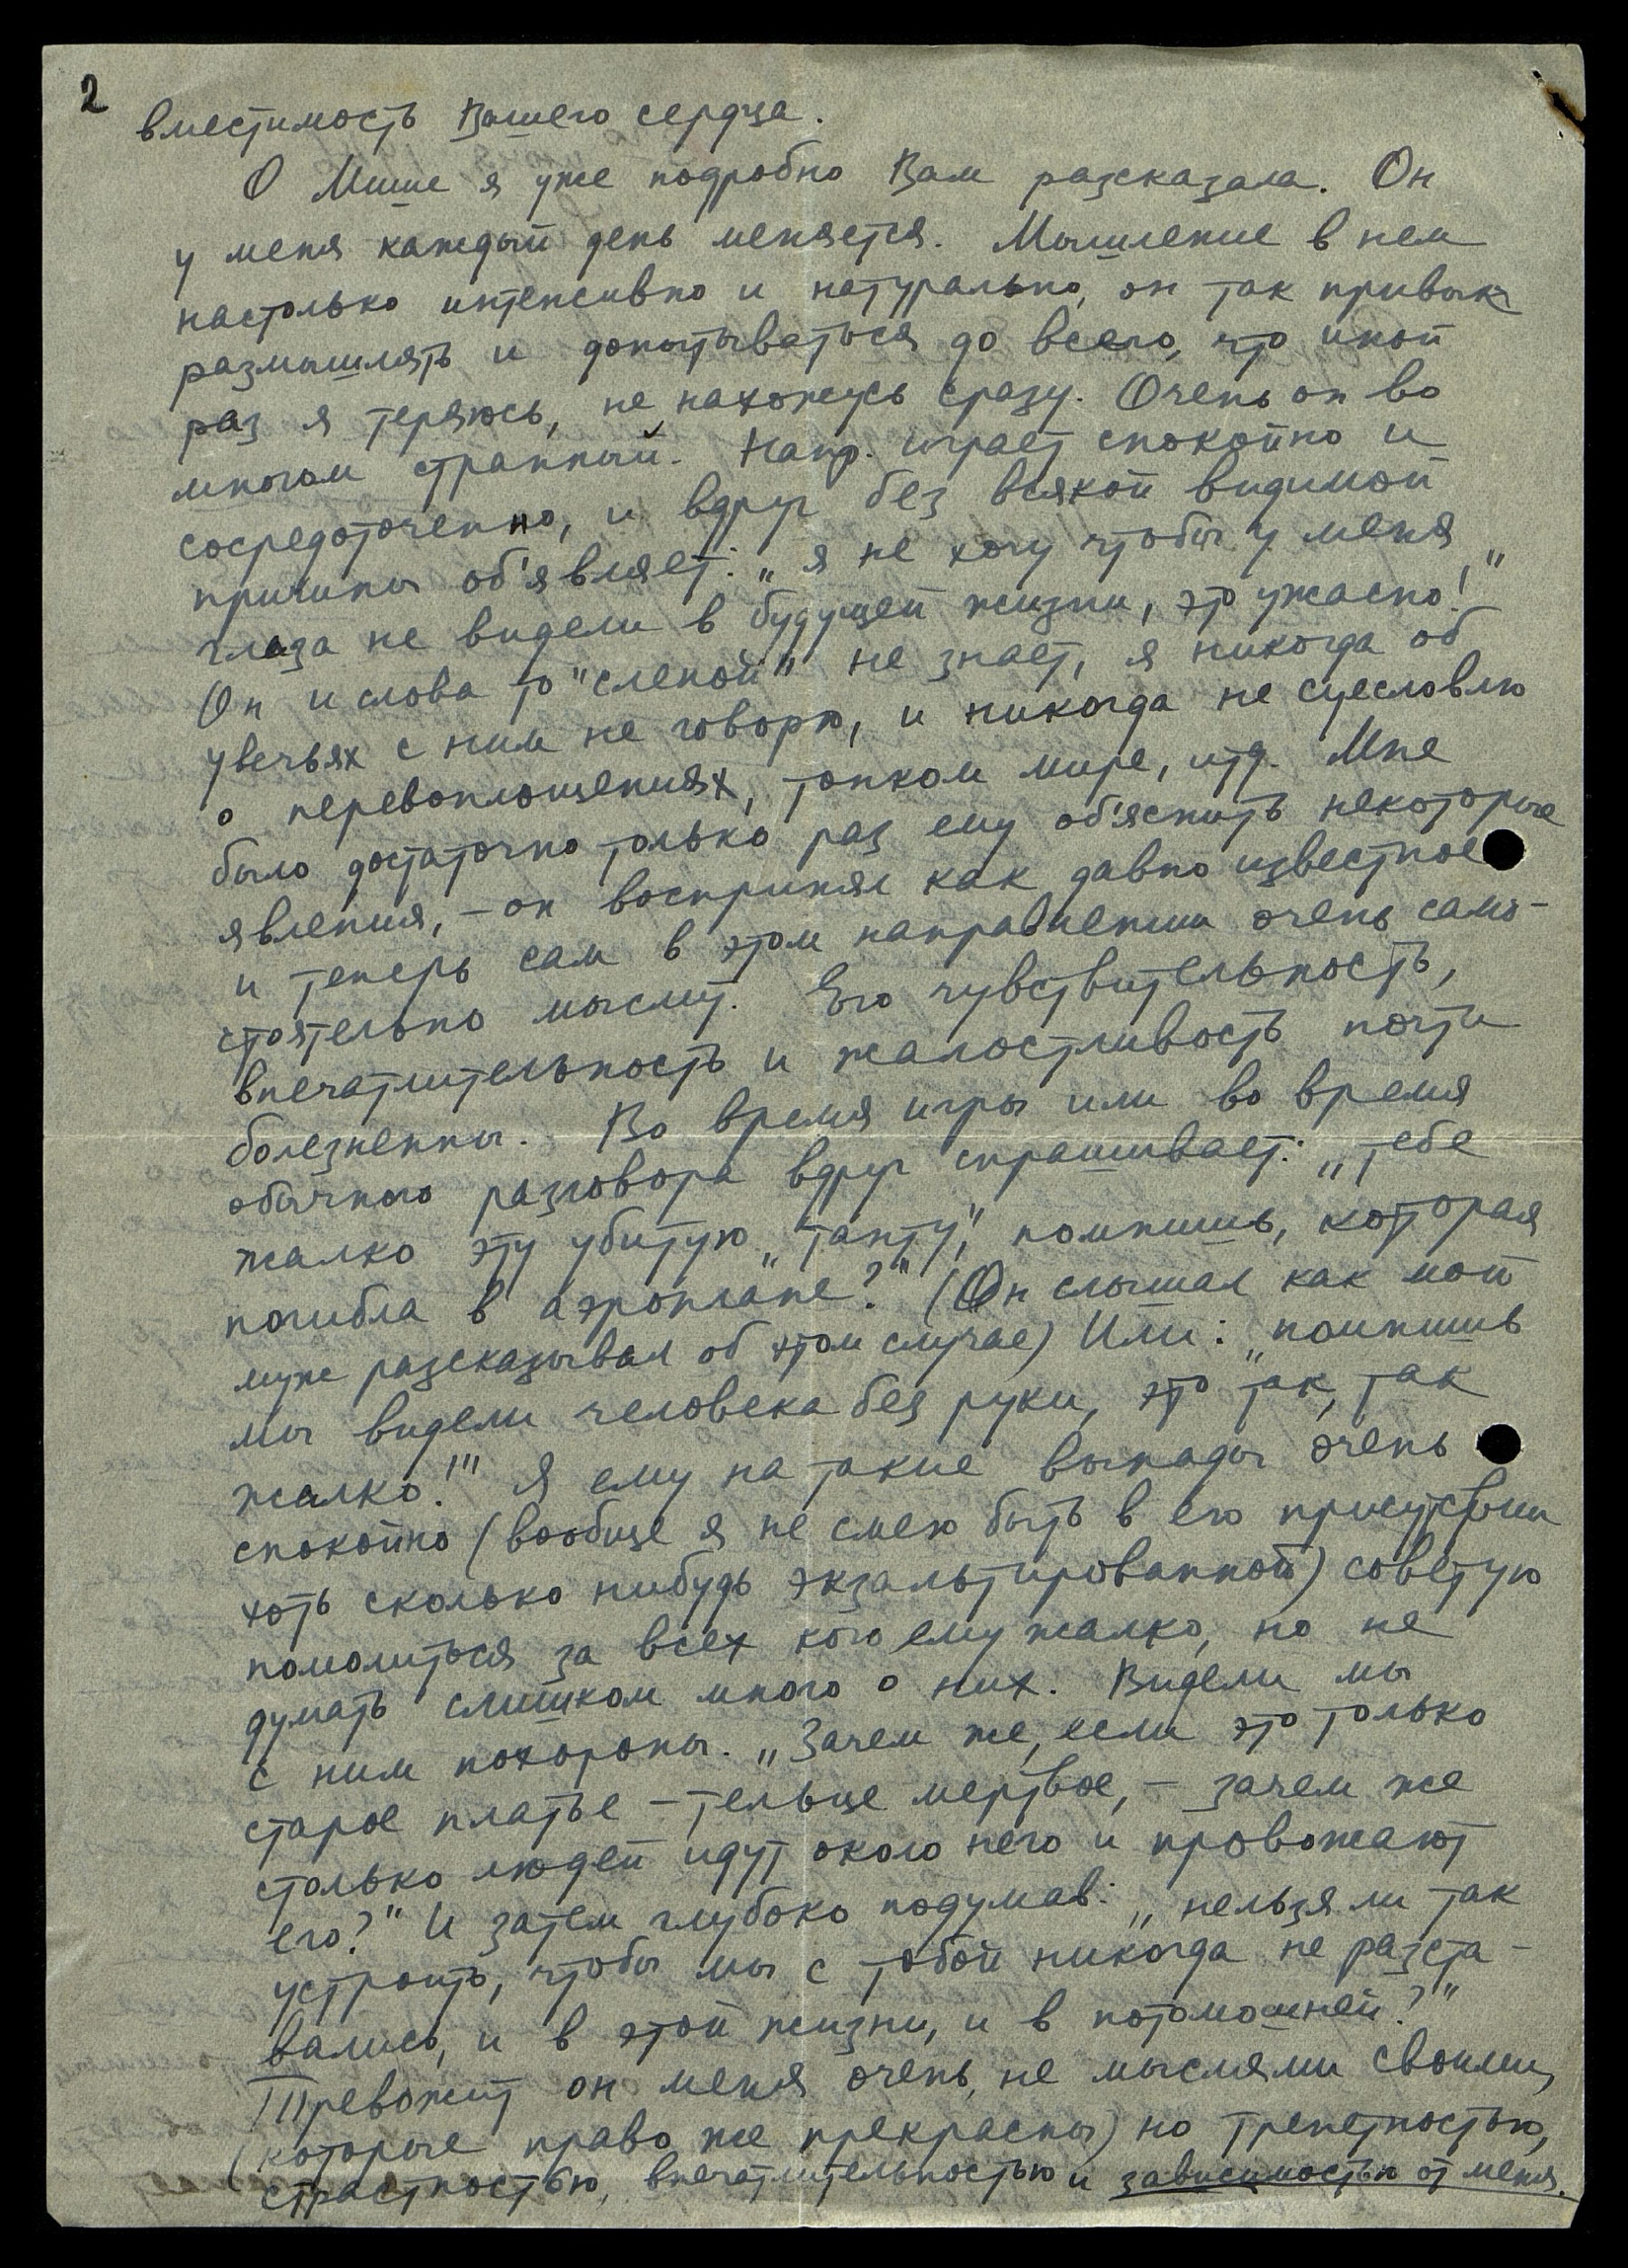 2
вместимость Вашего сердца.
О Мише я уже подробно Вам разсказала. Он
у меня каждый день меняется. Мышление в нем
настолько интенсивно и натурально, он так привык
размышлять и допытываться до всего, что иной
раз я теряюсь, не нахожусь сразу. Очень он во
многом странный. Напр. играет спокойно и
сосредоточенно, и вдруг без всякой видимой
причины об'являет: „я не хочу чтобы у меня
глаза не видели в будущей жизни, это ужасно!"
Он и слова то "слепой" не знает, я никогда об
увечьях с ним не говорю, и никогда не суесловлю
о перевоплощениях, тонком мире, итд. Мне
было достаточно только раз ему об'яснить некоторые
явления, – он воспринял как давно известное
и теперь сам в этом направлении очень само-
стоятельно мыслит. Его чувствительность,
впечатлительность и жалостливость почти
болезненны. Во время игры или во время
обычного разговора вдруг спрашивает: „тебе
жалко эту убитую „танту", помнишь, которая
погибла в аэроплане?" (Он слышал как мой
муж разсказывал об этом случае) Или: „помнишь
мы видели человека без руки, это так, так
жалко!!" Я ему на такие выпады очень
спокойно (вообще я не смею быть в его присутствии
хоть сколько нибудь экзальтированной) советую
помолиться за всех кого ему жалко, но не
думать слишком много о них. Видели мы
с ним похороны. „Зачем же, если это только
старое платье – тельце мертвое, – зачем же
столько людей идут около него и провожают
его?" И затем глубоко подумав: „нельзя ли так
устроить, чтобы мы с тобой никогда не разста-
вались, и в этой жизни, и в потомошней?"
Тревожит он меня очень, не мыслями своими,
(которые право же прекрасны) но трепетностью,
страстностью, впечатлительностью и зависимостью от меня.